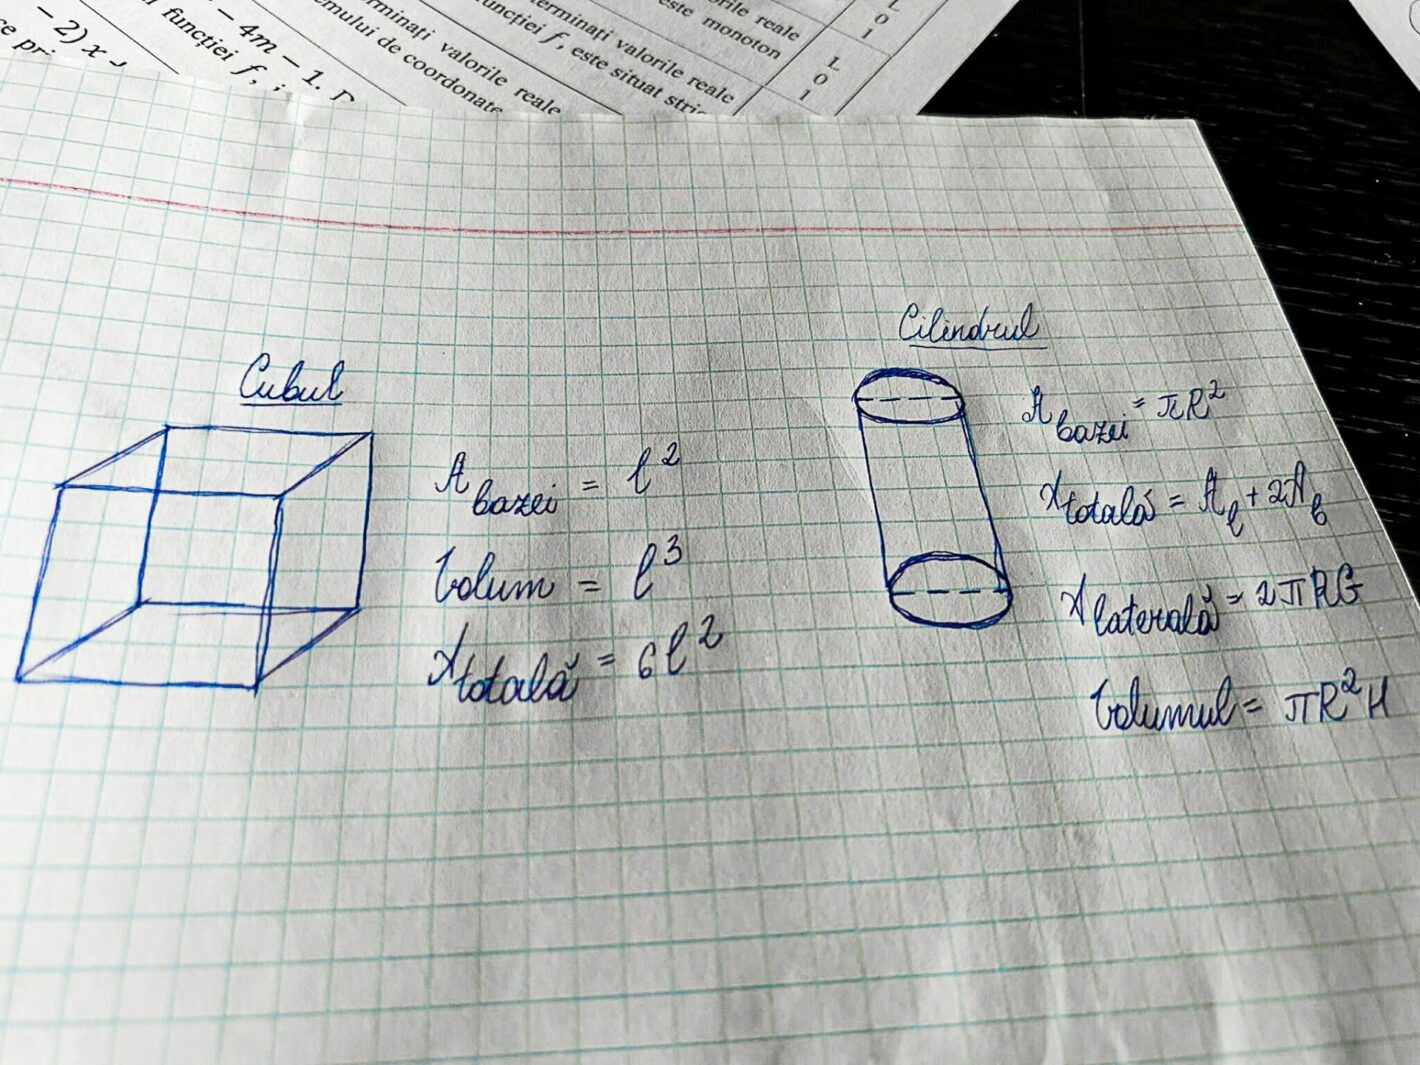 - 2) x
- 4m - 1.
funcției f, i
rminați valorile reale
emului de coordonate
terminați valorile reale
uncției f, este situat stric
orile reale
este monoton
L
0
1
L
0
1
Cubul
A bazei = l²
Volum = l³
A totală = 6l²
Cilindrul
A bazei = πR²
A totală = A l + 2A b
A laterală = 2πRG
Volumul = πR²H